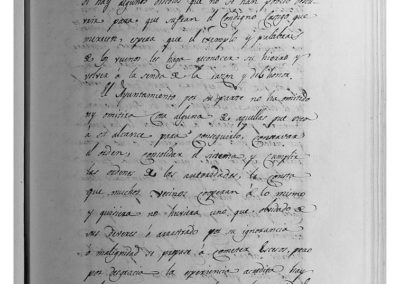 si hay algunos que no se han
para que sufran el condigno castigo que
merecen, espera que el exemplo y palabras
de los buenos les haga reconocer su
y volver a la senda de la razon y del honor.
El Ayuntamiento por su parte no ha omitido
ny omitira cosa alguna de aquellas que
a su alcance para conseguirlo, conservar
el orden, consolidar el sistema y cumplir
las ordenes de las autoridades, le consta
que muchos vecinos cooperan a lo mismo
y quisiera no hubiera uno que, olvidado de
sus deveres ó arrastrado por su ignorancia
ó malignidad se propase á cometer excesos, pero
por desgracia la experiencia acredita hay